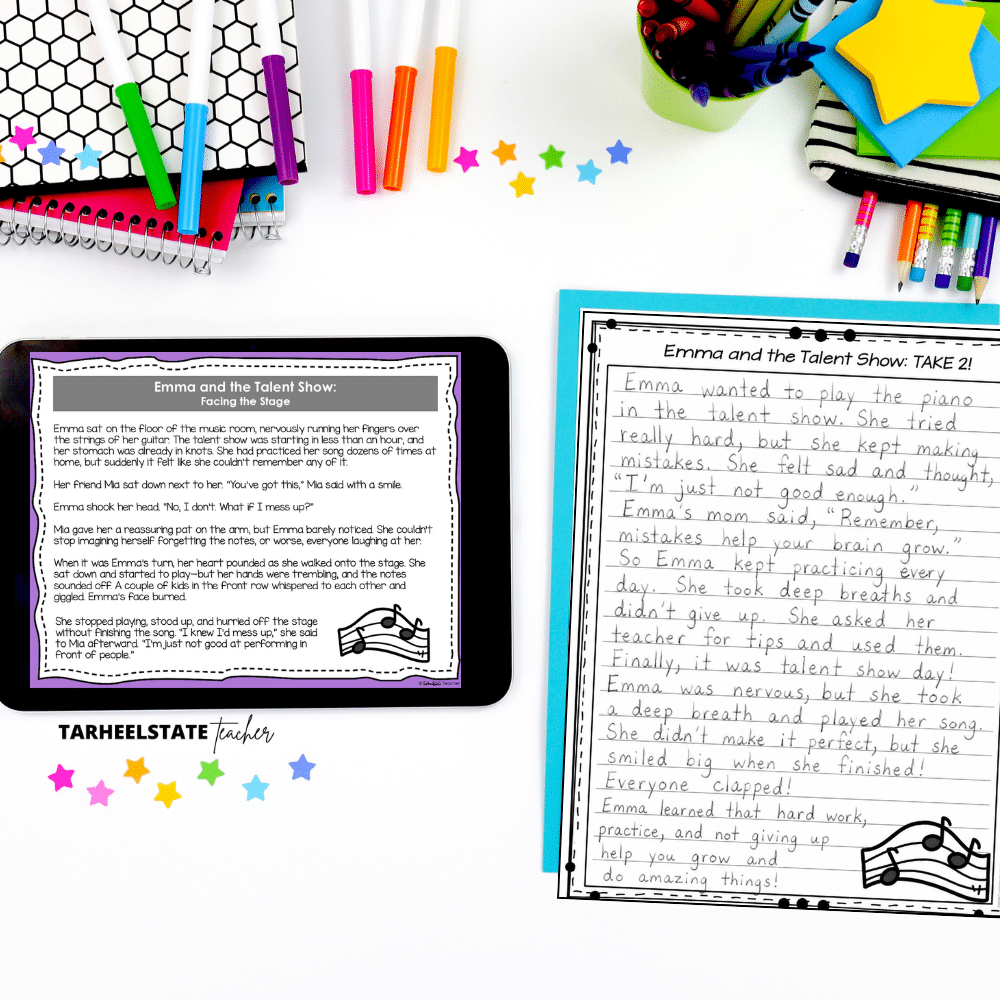 Emma and the Talent Show:
Facing the Stage
Emma sat on the floor of the music room, nervously running her fingers over
the strings of her guitar. The talent show was starting in less than an hour, and
her stomach was already in knots. She had practiced her song dozens of times at
home, but suddenly it felt like she couldn't remember any of it.
Her friend Mia sat down next to her. "You've got this," Mia said with a smile.
Emma shook her head. "No, I don't. What if I mess up?"
Mia gave her a reassuring pat on the arm, but Emma barely noticed. She couldn't
stop imagining herself forgetting the notes, or worse, everyone laughing at her.
When it was Emma's turn, her heart pounded as she walked onto the stage. She
sat down and started to play—but her hands were trembling, and the notes
sounded off. A couple of kids in the front row whispered to each other and
giggled. Emma's face burned.
She stopped playing, stood up, and hurried off the stage
without finishing the song. "I knew I'd mess up," she said
to Mia afterward. "I'm just not good at performing in
front of people."
TARHEELSTATE teacher
Emma and the Talent Show: TAKE 2!
Emma wanted to play the piano
in the talent show. She tried
really hard, but she kept making
mistakes. She felt sad and thought,
"I'm just not good enough."
Emma's mom said, "Remember,
mistakes help your brain grow."
So Emma kept practicing every
day. She took deep breaths and
didn't give up. She asked her
teacher for tips and used them.
Finally, it was talent show day!
Emma was nervous, but she took
a deep breath and played her song.
She didn't make it perfect, but she
smiled big when she finished!
Everyone clapped!
Emma learned that hard work,
practice, and not giving up
help you grow and
do amazing things!